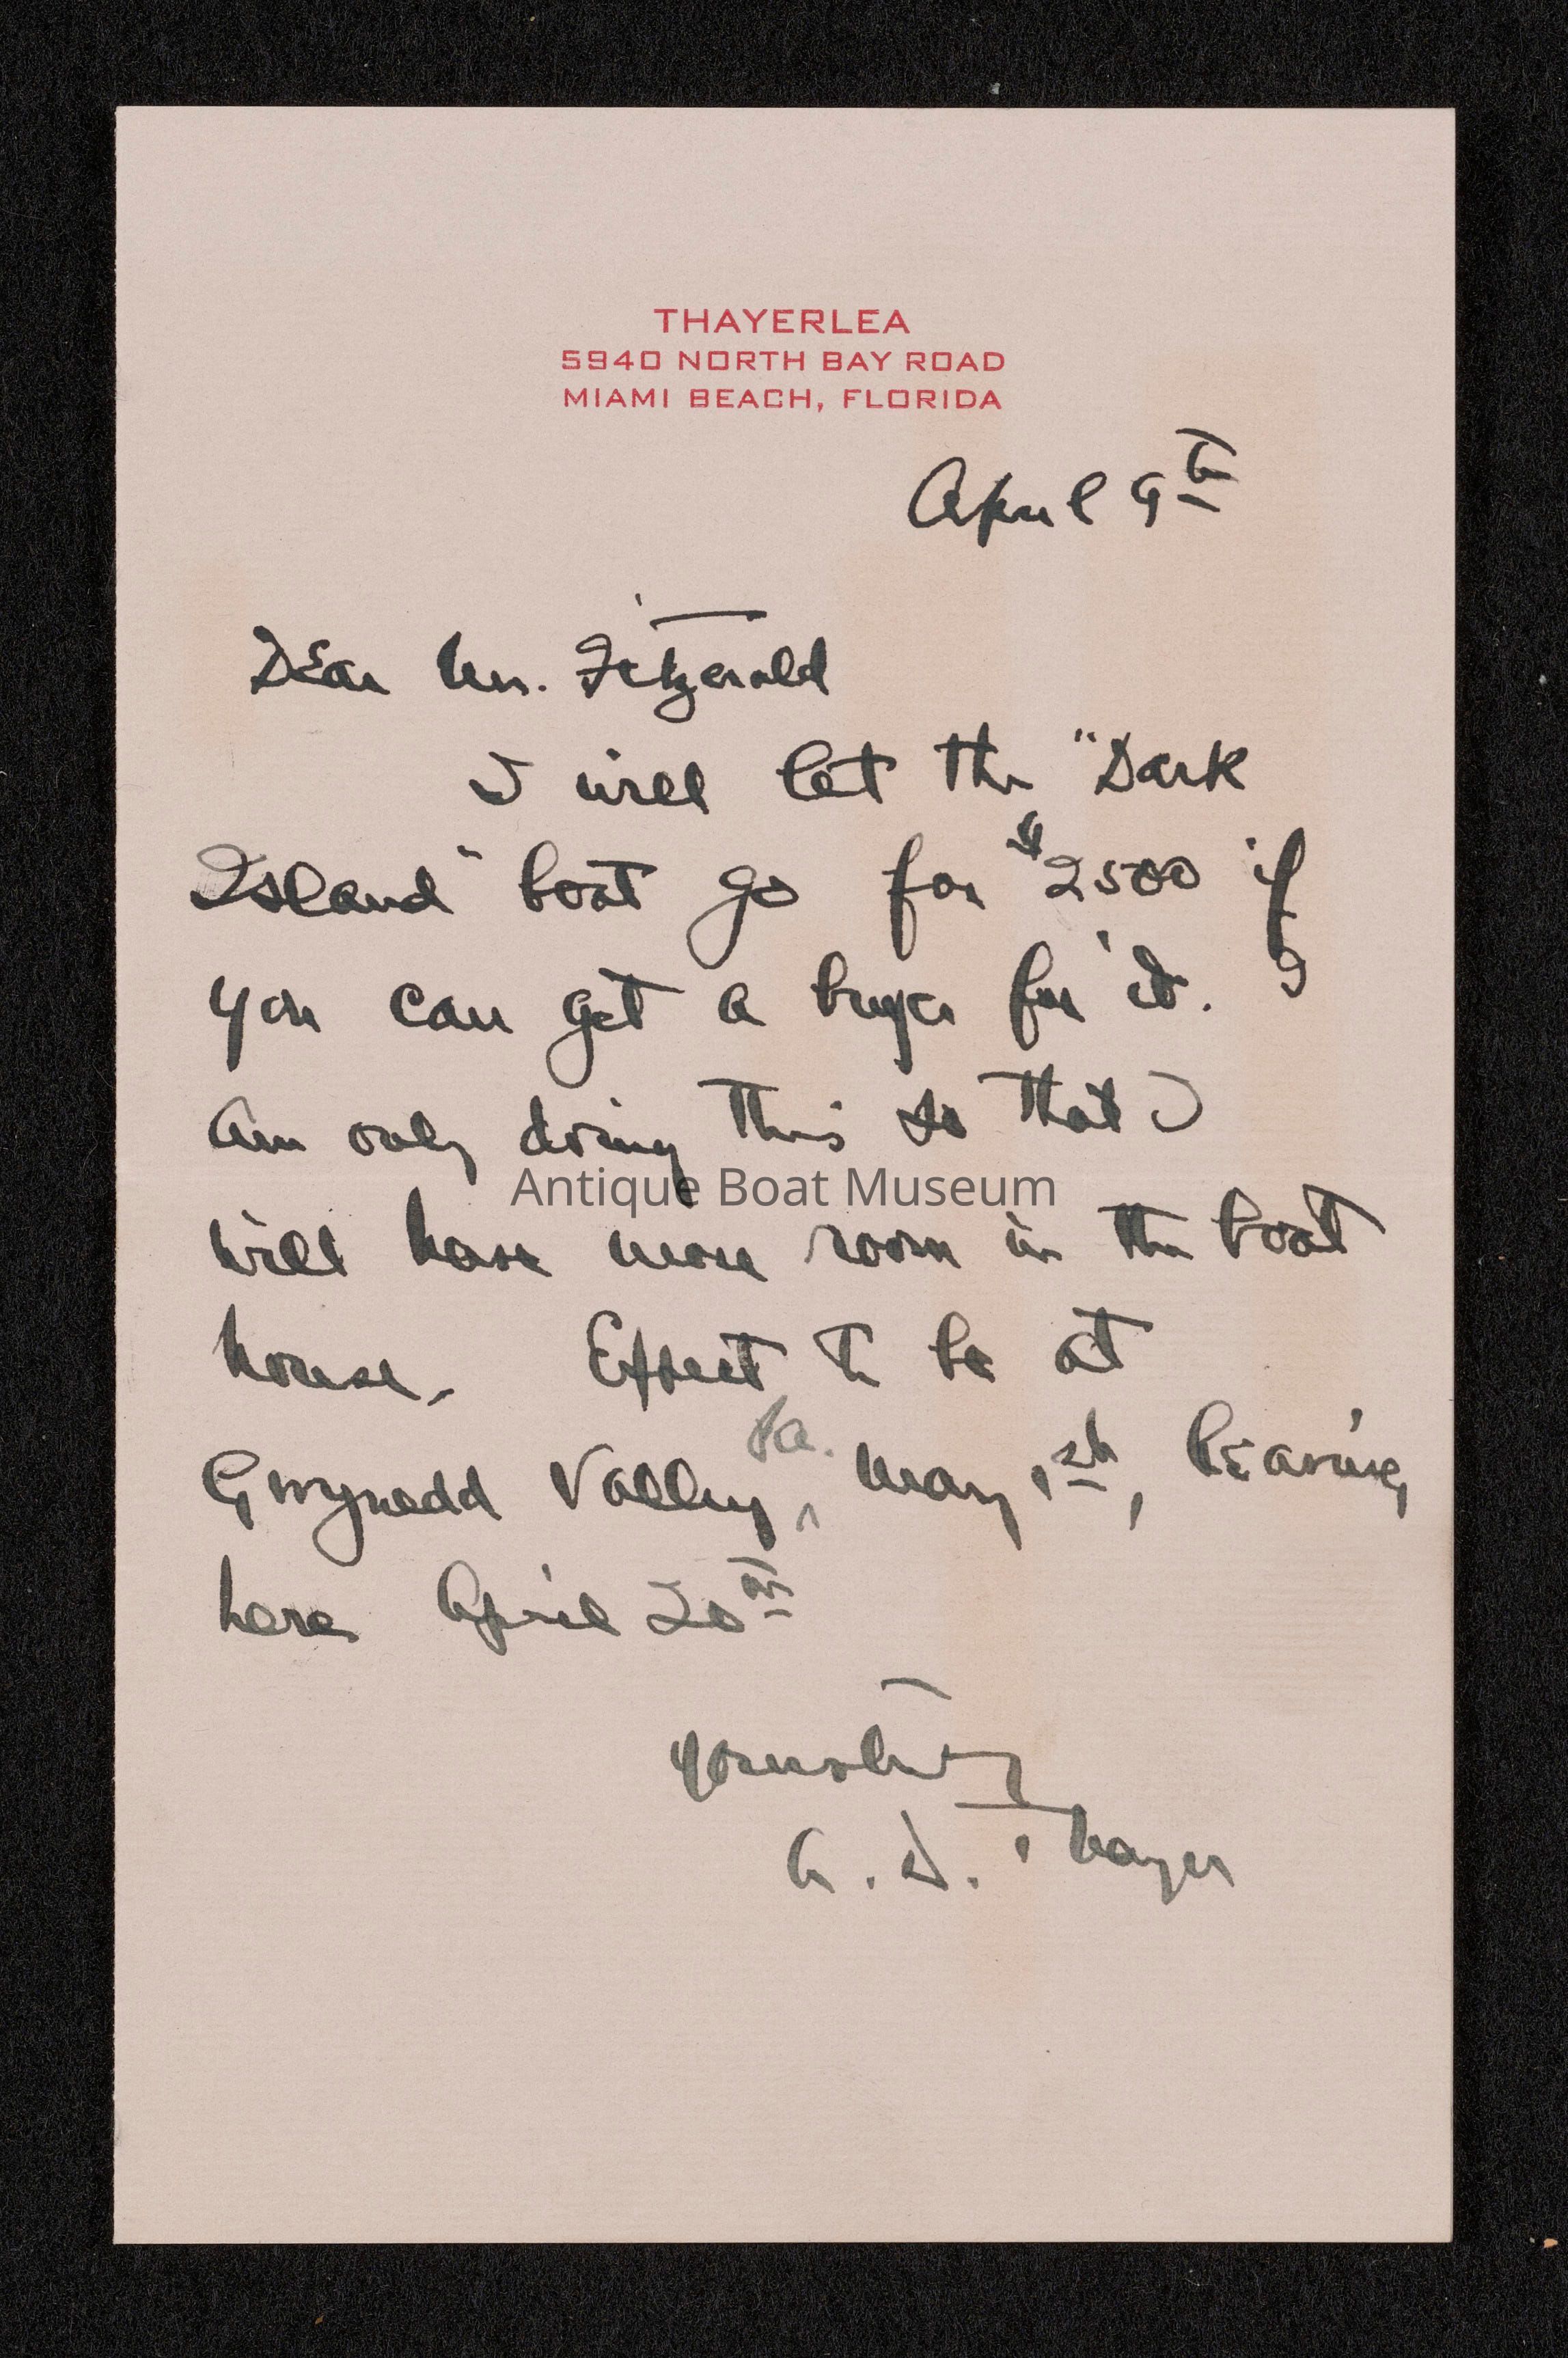 THAYERLEA
5940 NORTH BAY ROAD
MIAMI BEACH, FLORIDA
April 9th
Dear Mr. Fitzgerald
I will let the "Dark
Island" boat go for $2500 if
you can get a buyer for it. I
am only doing this so that I
Antique Boat Museum
will have more room in the boat
house. Expect to be at
Gwynedd Valley, Pa. May 1st, leaving
here April 20th
Yours truly
A. J. Thayer